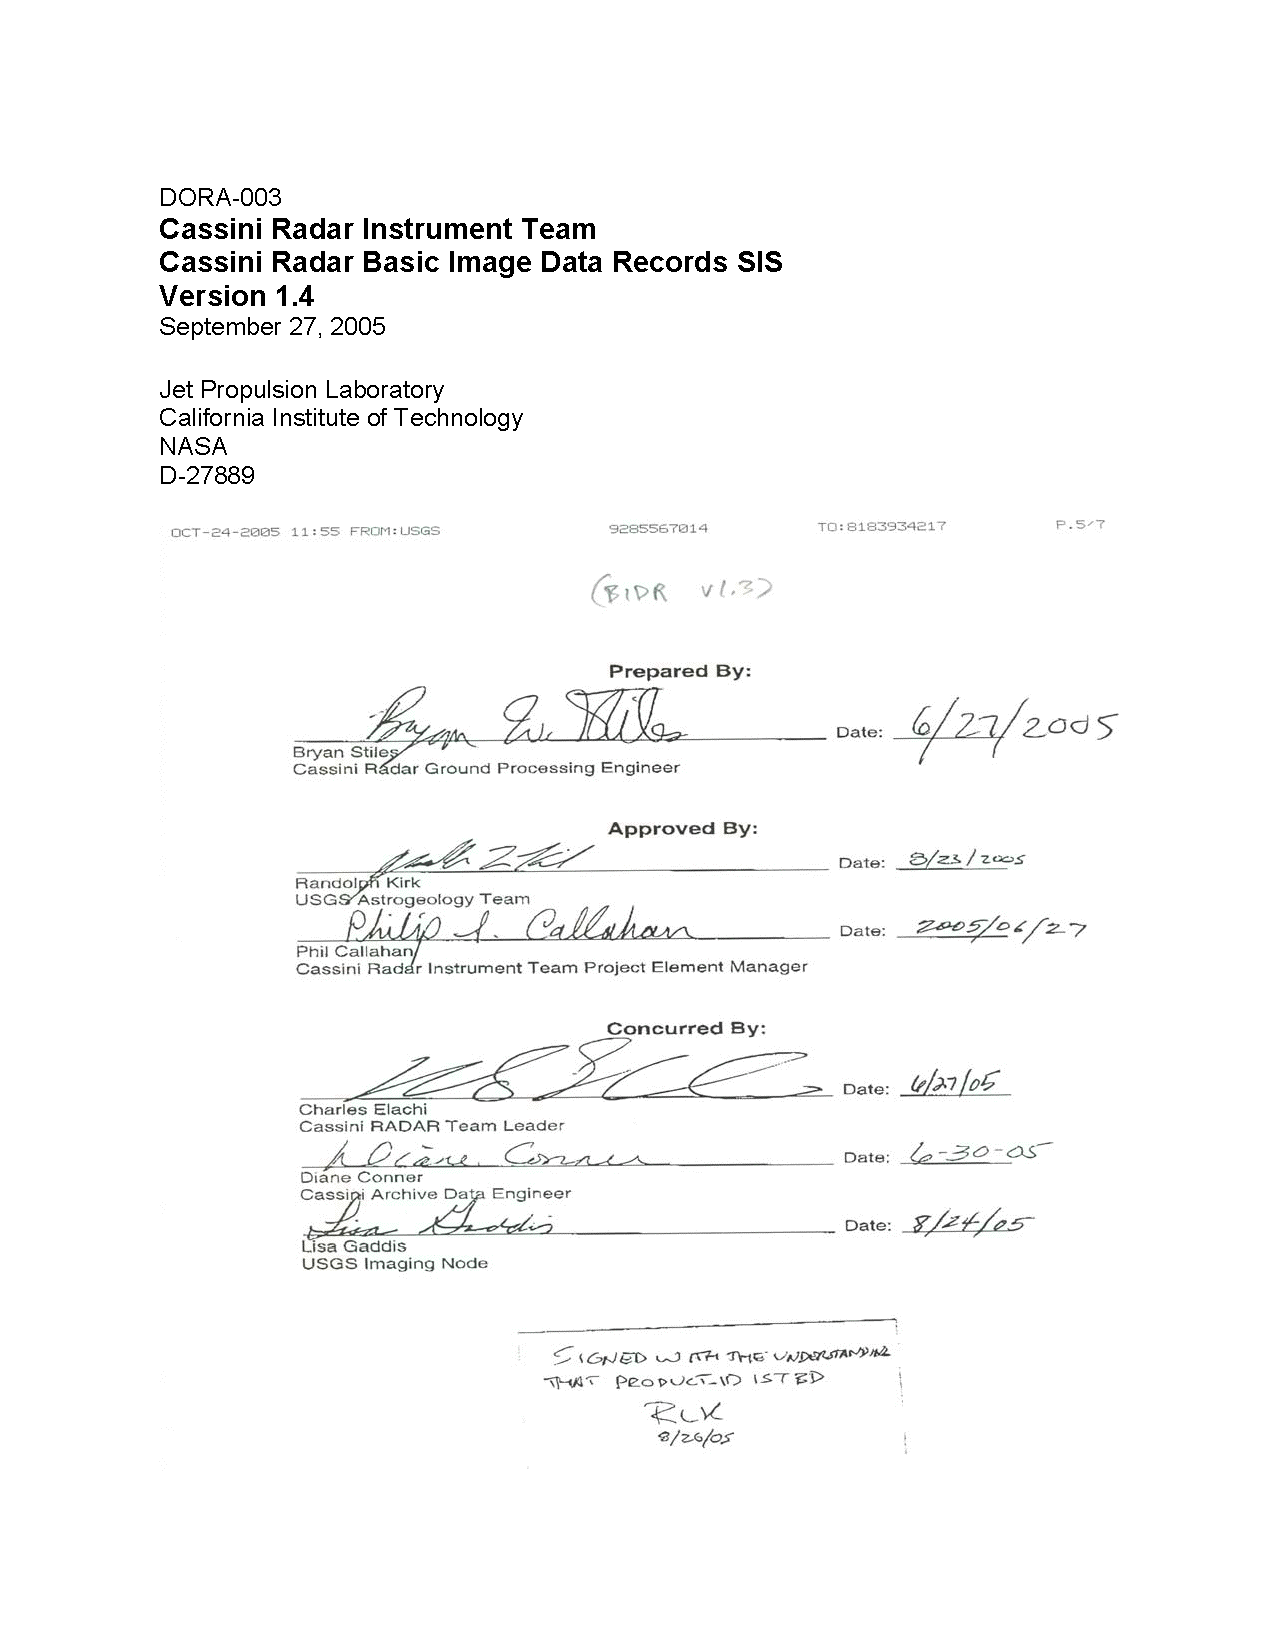 DORA-003
Cassini Radar Instrument Team
Cassini Radar Basic Image Data Records SIS
Version 1.4
September 27, 2005
Jet Propulsion Laboratory
California Institute of Technology
NASA
D-27889
OCT-24-2005 11:55 FROM:USGS 9285567014 TO:8183934217 P.5/7
(BIDR v1.3)
Prepared By:
Bryan W. Stiles Date: 6/27/2005
Bryan Stiles
Cassini Radar Ground Processing Engineer
Approved By:
Date: 8/23/2005
Randolph Kirk
USGS Astrogeology Team
Philip S. Callahan Date: 2005/06/27
Phil Callahan
Cassini Radar Instrument Team Project Element Manager
Concurred By:
Date: 6/27/05
Charles Elachi
Cassini RADAR Team Leader
Diane Conner Date: 6-30-05
Diane Conner
Cassini Archive Data Engineer
Lisa Gaddis Date: 8/24/05
Lisa Gaddis
USGS Imaging Node
SIGNED WITH THE UNDERSTANDING
THAT PRODUCT_ID IS TBD
RLK
8/26/05